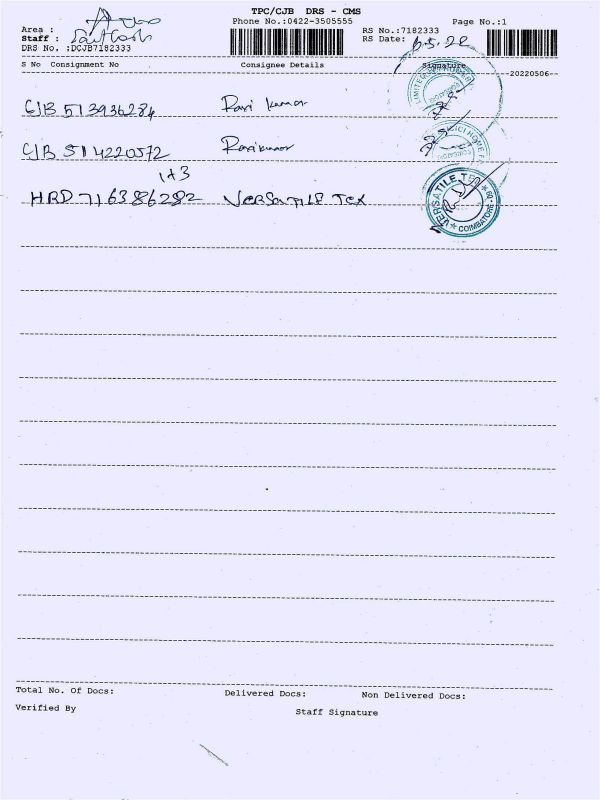 TPC/CJB DRS - CMS
Phone No.:0422-3505555
Page No.:1
Area :
Staff : Santhosh
DRS No. :DCJB7182333
RS No.:7182333
RS Date: 6.5.22
S No Consignment No Consignee Details Signature
20220506
CJB 513936284 Ravi kumar
CJB 514220572 Ravikumar
1+3
HRD 716386282 VERSATILE TEX
VERSATILE TEX ★ COIMBATORE
Total No. Of Docs: Delivered Docs: Non Delivered Docs:
Verified By Staff Signature